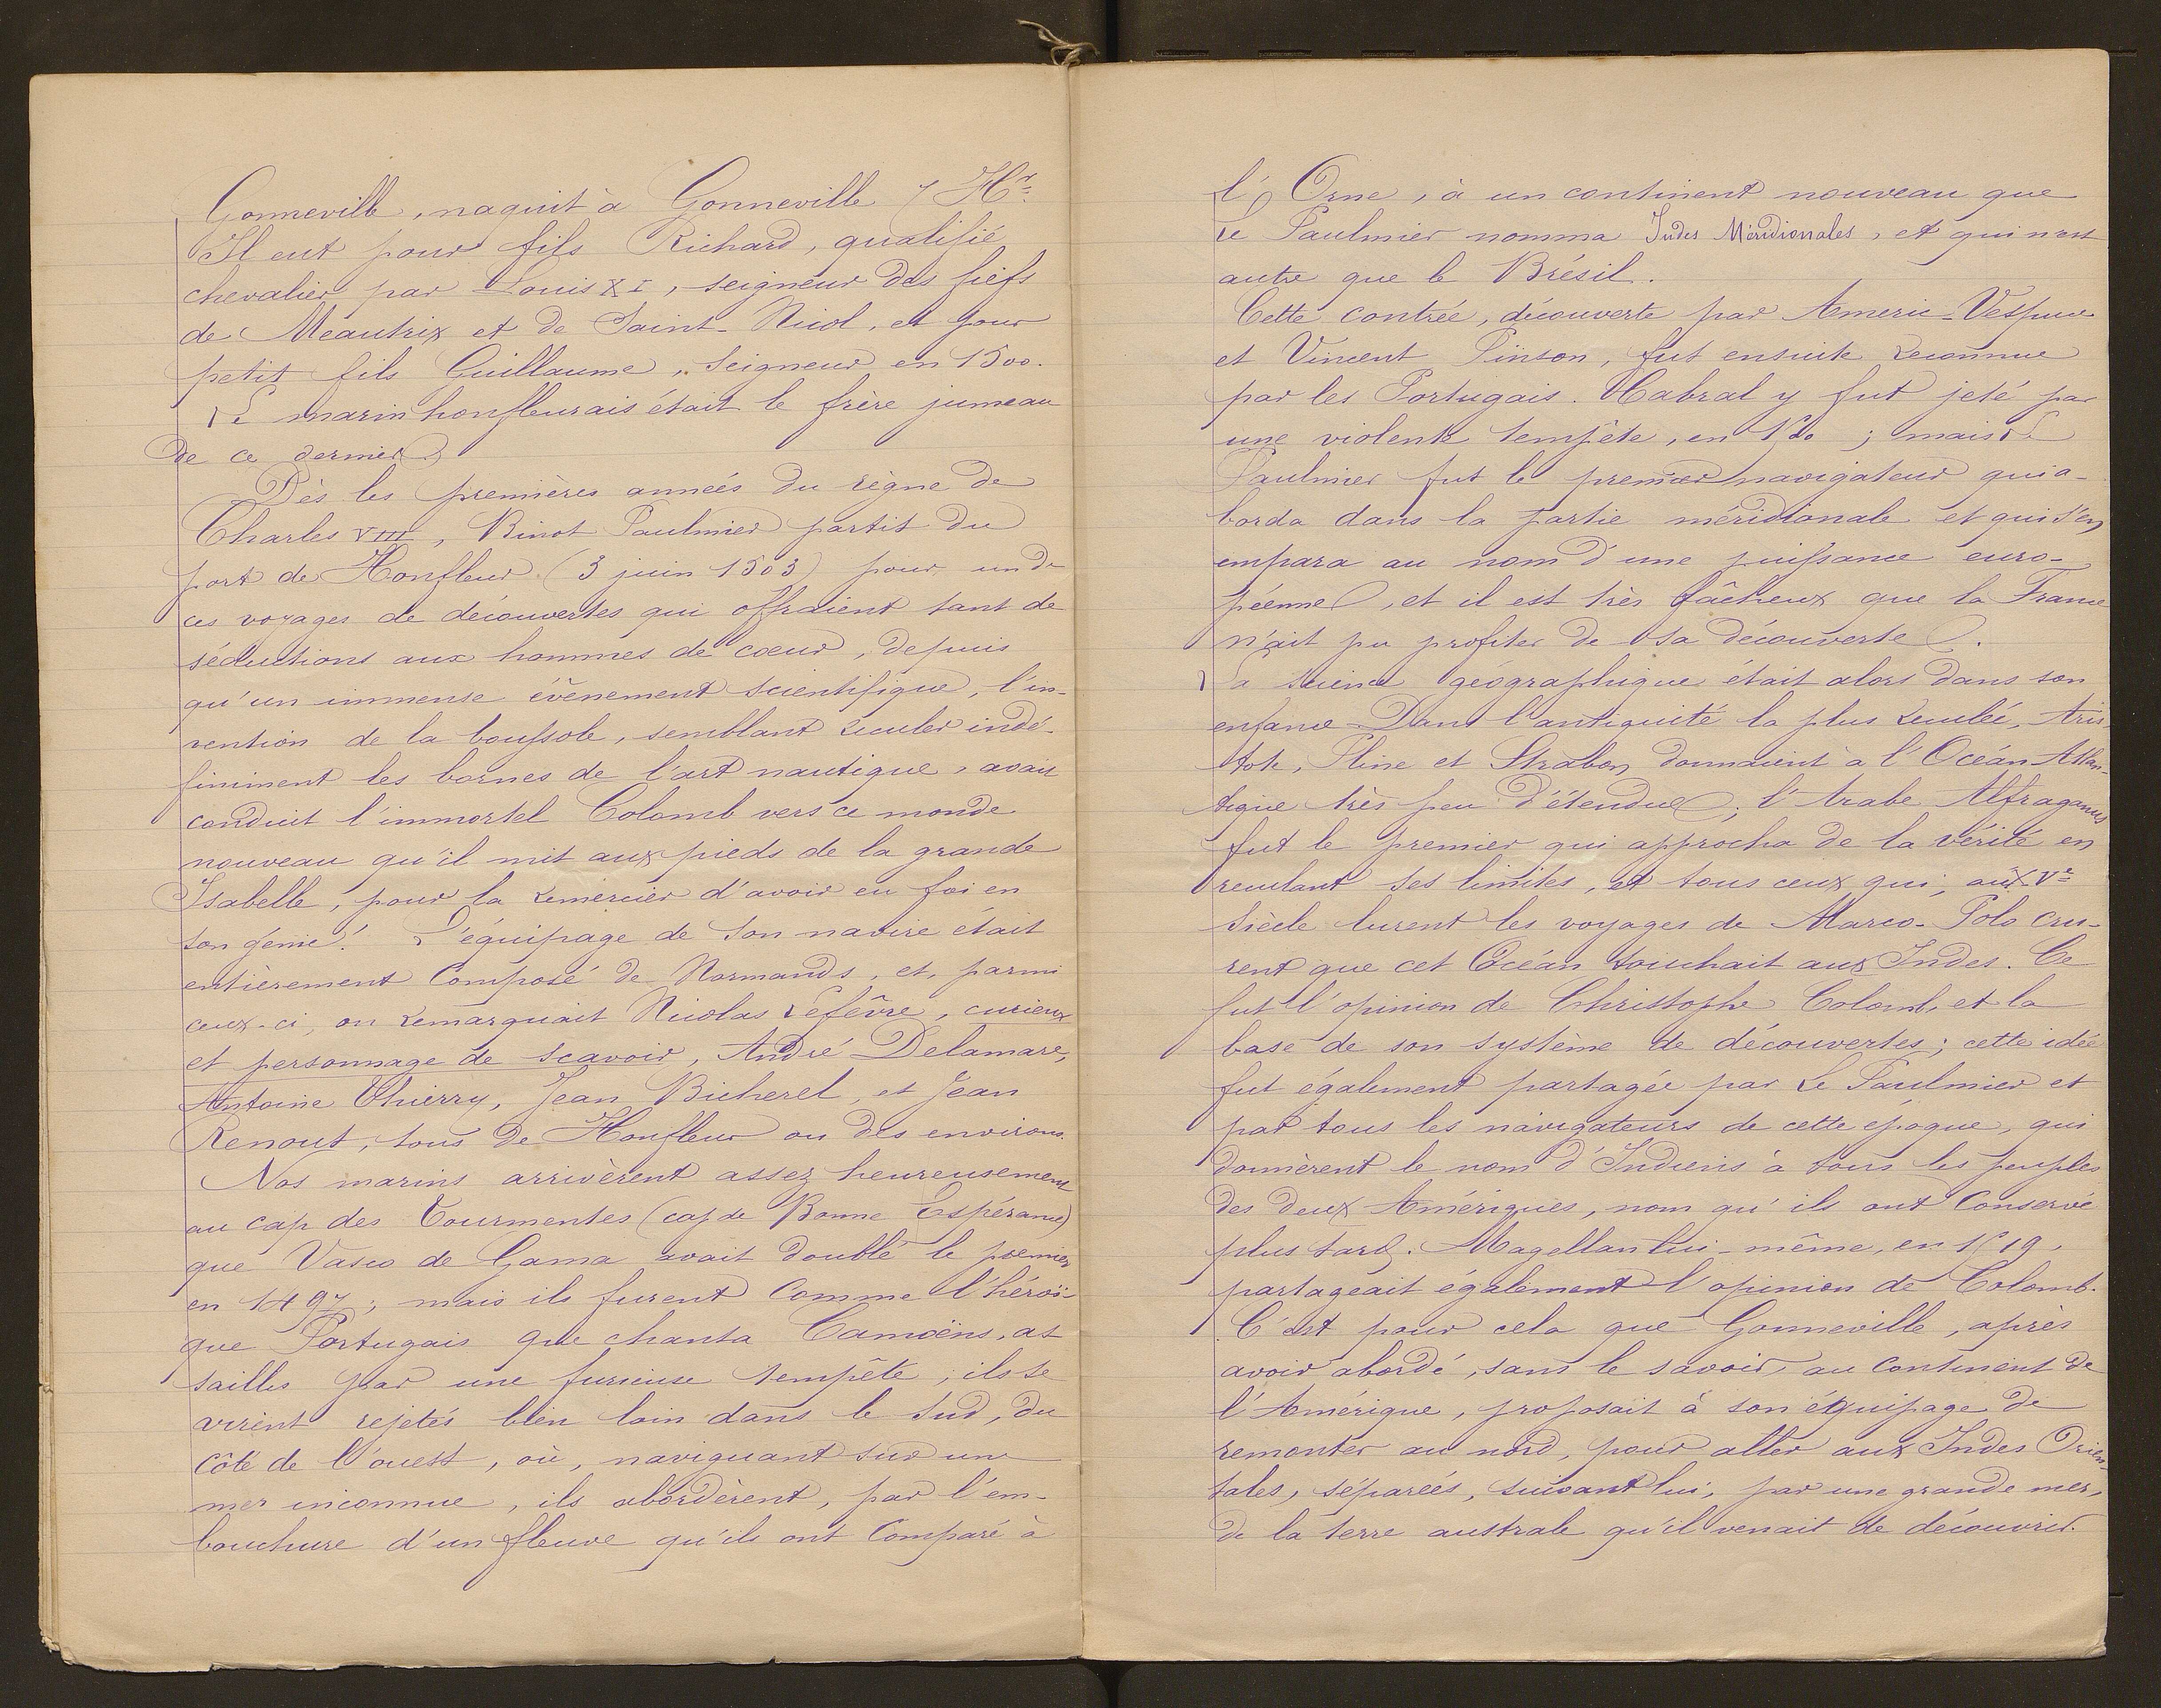 Gonneville, naquit à Gonneville s/ Hr.
Il eut pour fils Richard, qualifié
chevalier par Louis XI, seigneur des fiefs
de Meautrix et de Saint-Nicol, et pour
petit fils Guillaume, Seigneur en 1500.
Le marin honfleurais était le frère jumeau
de ce dernier.
Dès les premières années du règne de
Charles VIII, Binot Paulmier partit du
port de Honfleur (3 juin 1503) pour un de
ces voyages de découvertes qui offraient tant de
séductions aux hommes de cœur, depuis
qu'un immense évènement scientifique, l'in-
vention de la boussole, semblant reculer indé-
finiment les bornes de l'art nautique, avait
conduit l'immortel Colomb vers ce monde
nouveau qu'il mit aux pieds de la grande
Isabelle, pour la remercier d'avoir eu foi en
son génie! L'équipage de son navire était
entièrement composé de Normands, et, parmi
ceux-ci, on remarquait Nicolas Lefêvre, curieux
et personnage de scavoir, André Delamare,
Antoine Thierry, Jean Bicherel, et Jean
Renout, tous de Honfleur ou des environs.
Nos marins arrivèrent assez heureusement
au cap des Tourmentes (cap de Bonne Espérance)
que Vasco de Gama avait doublé le premier
en 1497; mais ils furent comme l'héroï-
que Portugais que chanta Camoëns, as
saillis par une furieuse tempête; ils se
virent rejetés bien loin dans le Sud, du
côté de l'ouest, où, naviguant sur une
mer inconnue, ils abordèrent, par l'em-
bouchure d'un fleuve qu'ils ont comparé à
l'Orne, à un continent nouveau que
Le Paulmier nomma Indes Méridionales, et qui n'est
autre que le Brésil.
Cette contrée, découverte par Americ-Vespuce
et Vincent Pinson, fut ensuite reconnue
par les Portugais. Cabral y fut jeté par
une violente tempête, en 1500; mais Le
Paulmier fut le premier navigateur qui a-
borda dans la partie méridionale et qui s'en
empara au nom d'une puissance euro-
péenne, et il est très fâcheux que la France
n'ait pu profiter de sa découverte.
La science géographique était alors dans son
enfance. Dans l'antiquité la plus reculée, Aris
tote, Pline et Strabon donnaient à l'Océan Atlan-
tique très peu d'étendue; l'Arabe Alfraganus
fut le premier qui approcha de la vérité en
reculant ses limites, et tous ceux qui, au XVe
Siècle lurent les voyages de Marco-Polo cru-
rent que cet Océan touchait aux Indes. Ce
fut l'opinion de Christophe Colomb, et la
base de son système de découvertes; cette idée
fut également partagée par Le Paulmier et
par tous les navigateurs de cette époque, qui
donnèrent le nom d'Indiens à tous les peuples
des deux Amériques, nom qu'ils ont conservé
plus tard. Magellan lui-même, en 1519,
partageait également l'opinion de Colomb.
C'est pour cela que Gonneville, après
avoir abordé, sans le savoir, au continent de
l'Amérique, proposait à son équipage de
remonter au nord, pour aller aux Indes Orien-
tales, séparées, suivant lui, par une grande mer,
de la terre australe qu'il venait de découvrir.